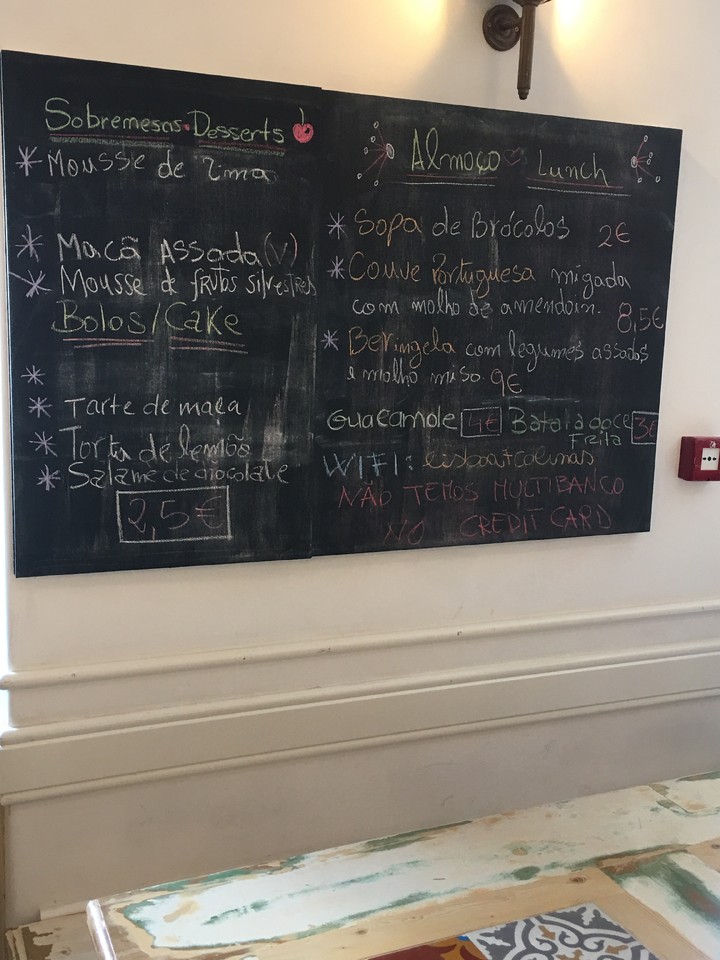 Sobremesas · Desserts
* Mousse de lima
* Macã Assada (V)
* Mousse de frutos silvestres
Bolos / Cake
*
* Tarte de maça
* Torta de lemão
* Salame de chocolate
2,5€
Almoço Lunch
* Sopa de Brócolos 2€
* Couve Portuguesa migada
com molho de amendoin. 8,5€
* Beringela com legumes assados
e molho miso. 9€
Guacamole 4€ Batata doce
Frita 3€
WIFI:
NÃO TEMOS MULTIBANCO
NO CREDIT CARD